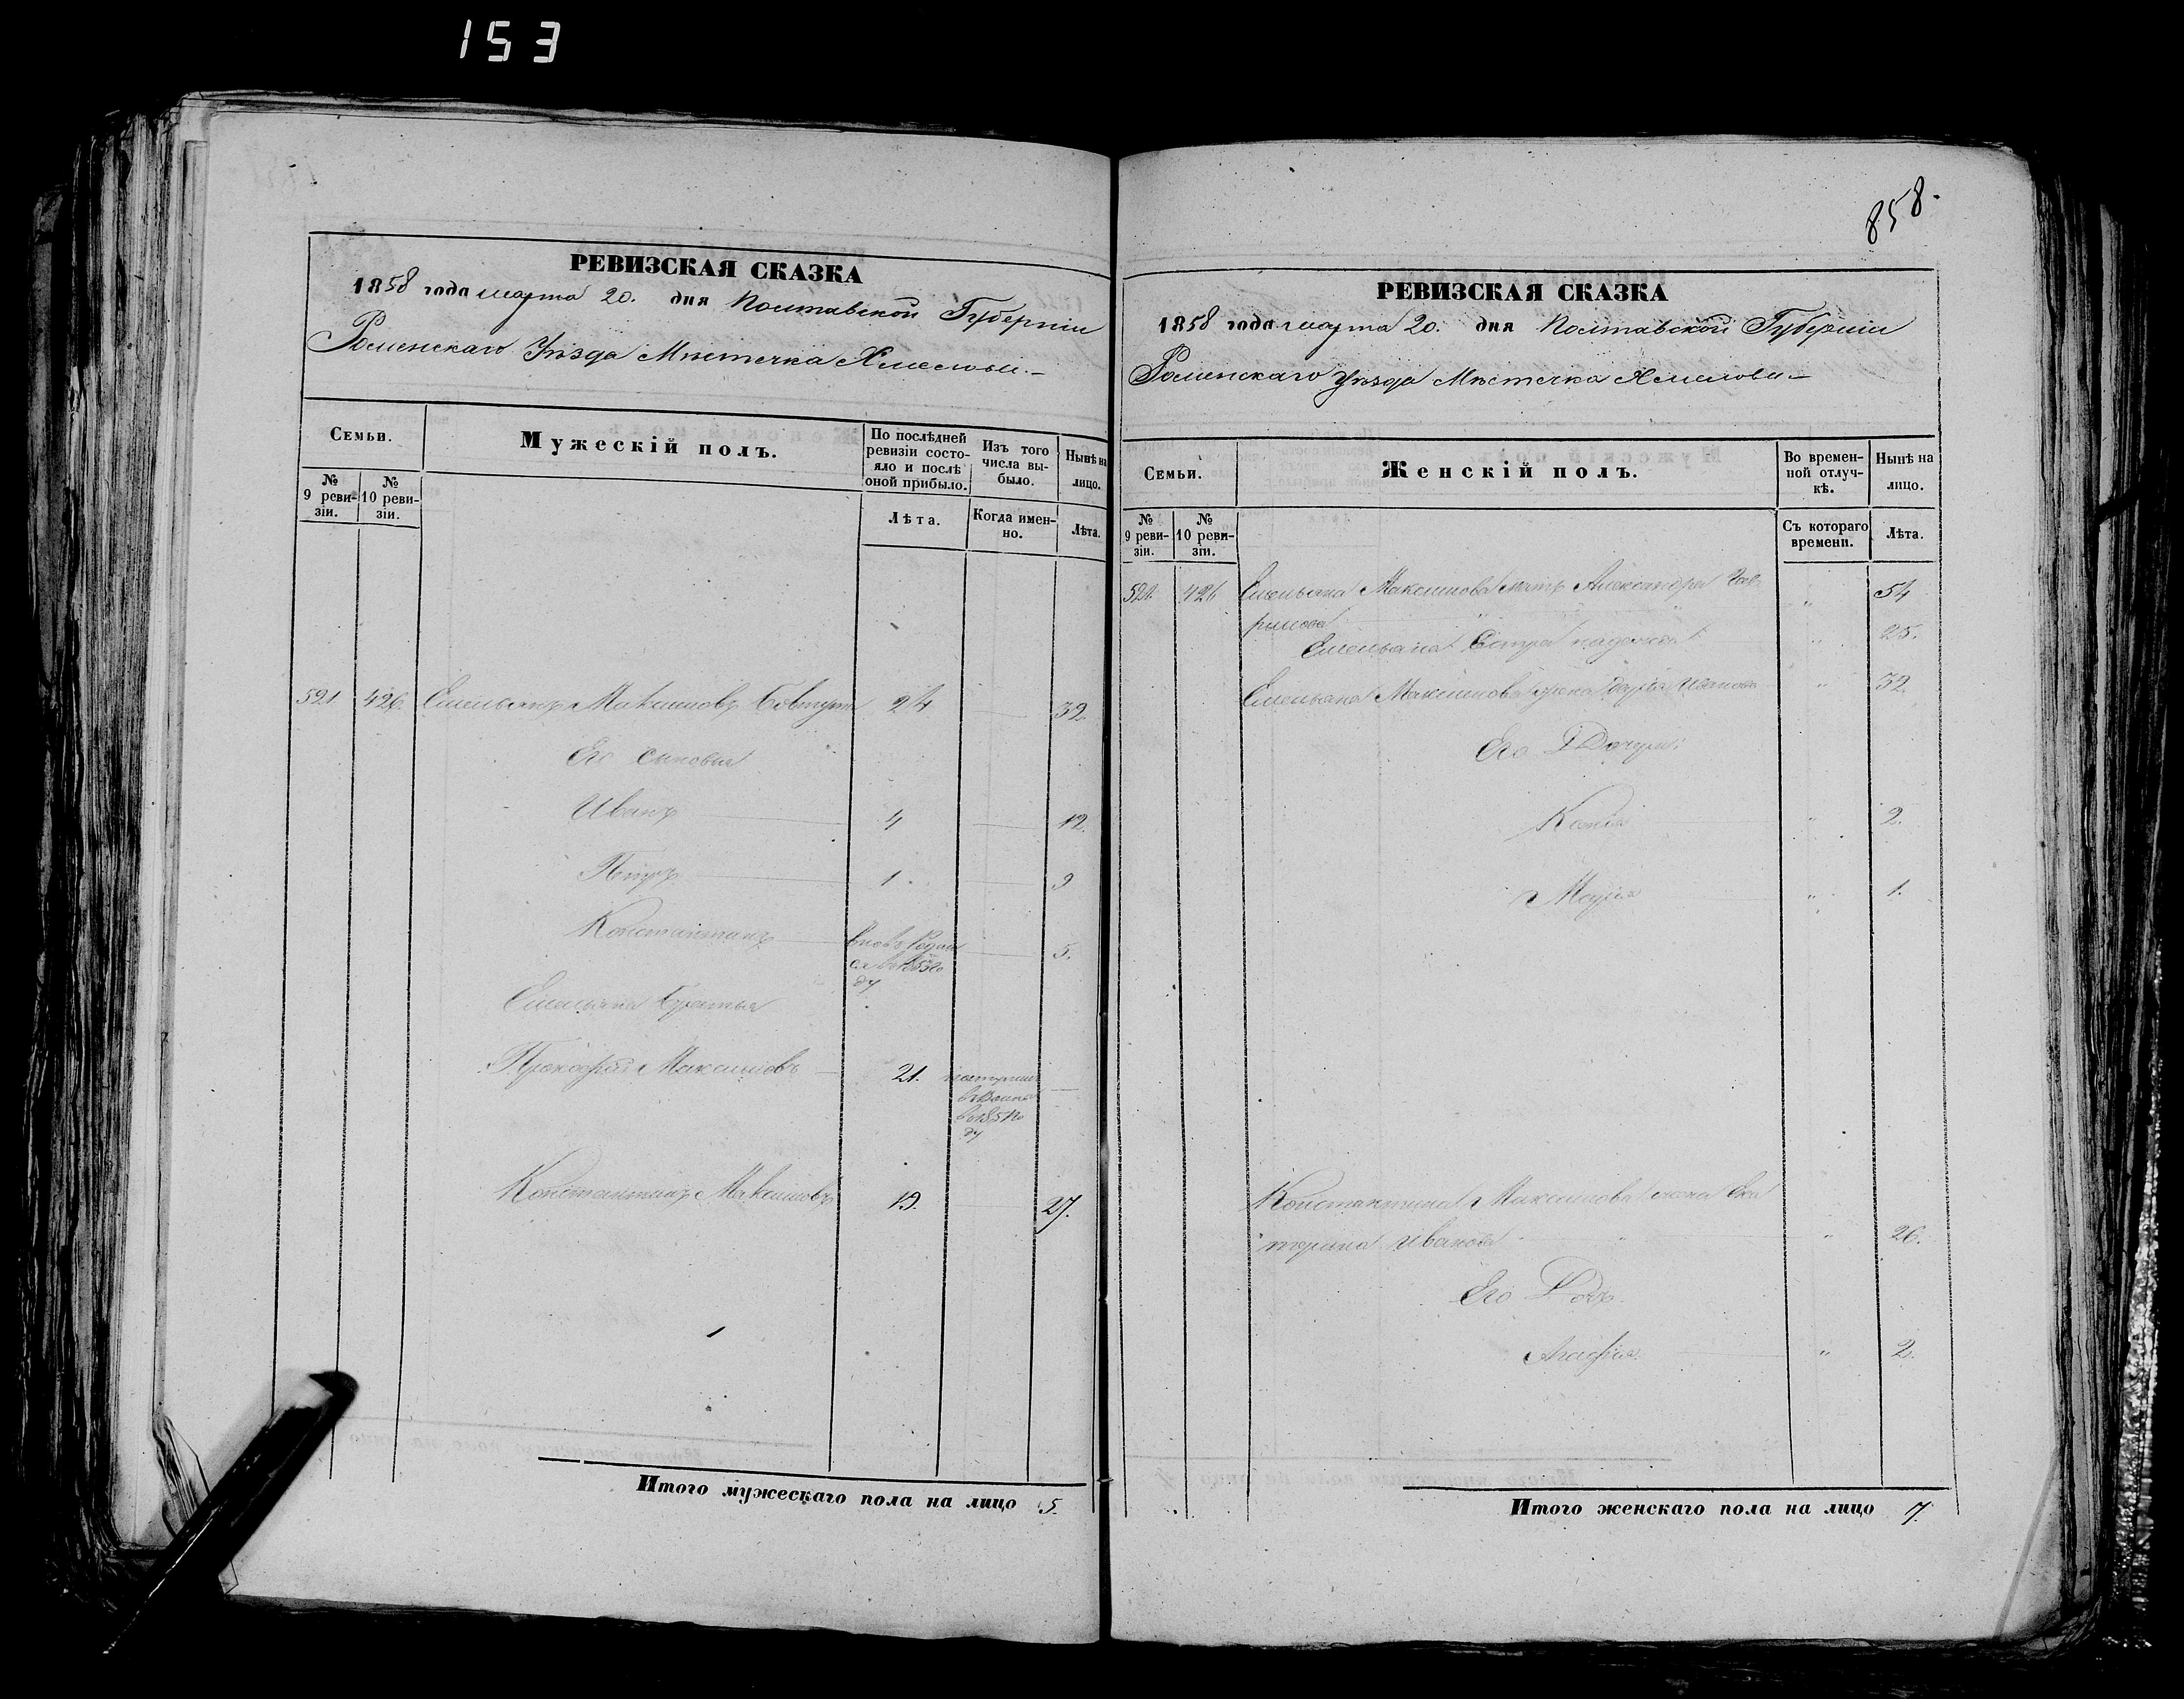 153
858.
РЕВИЗСКАЯ СКАЗКА
1858 года марта 20. дня Полтавской Губерніи
Роменскаго Уѣзда Мѣстечка Хмелова.
Семьи.
Мужескій полъ.
По послѣдней ревизіи состояло и послѣ оной прибыло.
Изъ того числа выбыло.
Нынѣ на лицо.
№ 9 ревизіи.
№ 10 ревизіи.
Лѣта.
Когда именно.
Лѣта.
521 426. Емельянъ Максимовъ Бовтунъ 24 — 32.
Его сыновья
Иванъ 4 — 12.
Петръ 1. — 9
Константинъ вновь родил — 5.
ся въ 1853 го
ду
Емельяна братья
Прокофій Максимовъ — 21. поступил —
в 1851 го
ду
Константинъ Максимовъ 19. — 27.
Итого мужескаго пола на лицо 5.
РЕВИЗСКАЯ СКАЗКА
1858 года марта 20. дня Полтавской Губерніи
Роменскаго Уѣзда Мѣстечка Хмелова
Семьи.
Женскій полъ.
Во временной отлучкѣ.
Нынѣ на лицо.
№ 9 ревизіи.
№ 10 ревизіи.
Съ котораго времени.
Лѣта.
521. 426 Емельяна Максимова мать Александра Гав „ 54
рилова
Емельяна Сестра надежда „ 25.
Емельяна Максимова жена Дарія Иванова „ 32
Его Дочери
Ксенія „ 2.
Марія „ 1.
Константина Максимова жена Ека
терина Иванова „ 26.
Его Дочь
Агафія „ 2.
Итого женскаго пола на лицо 7.